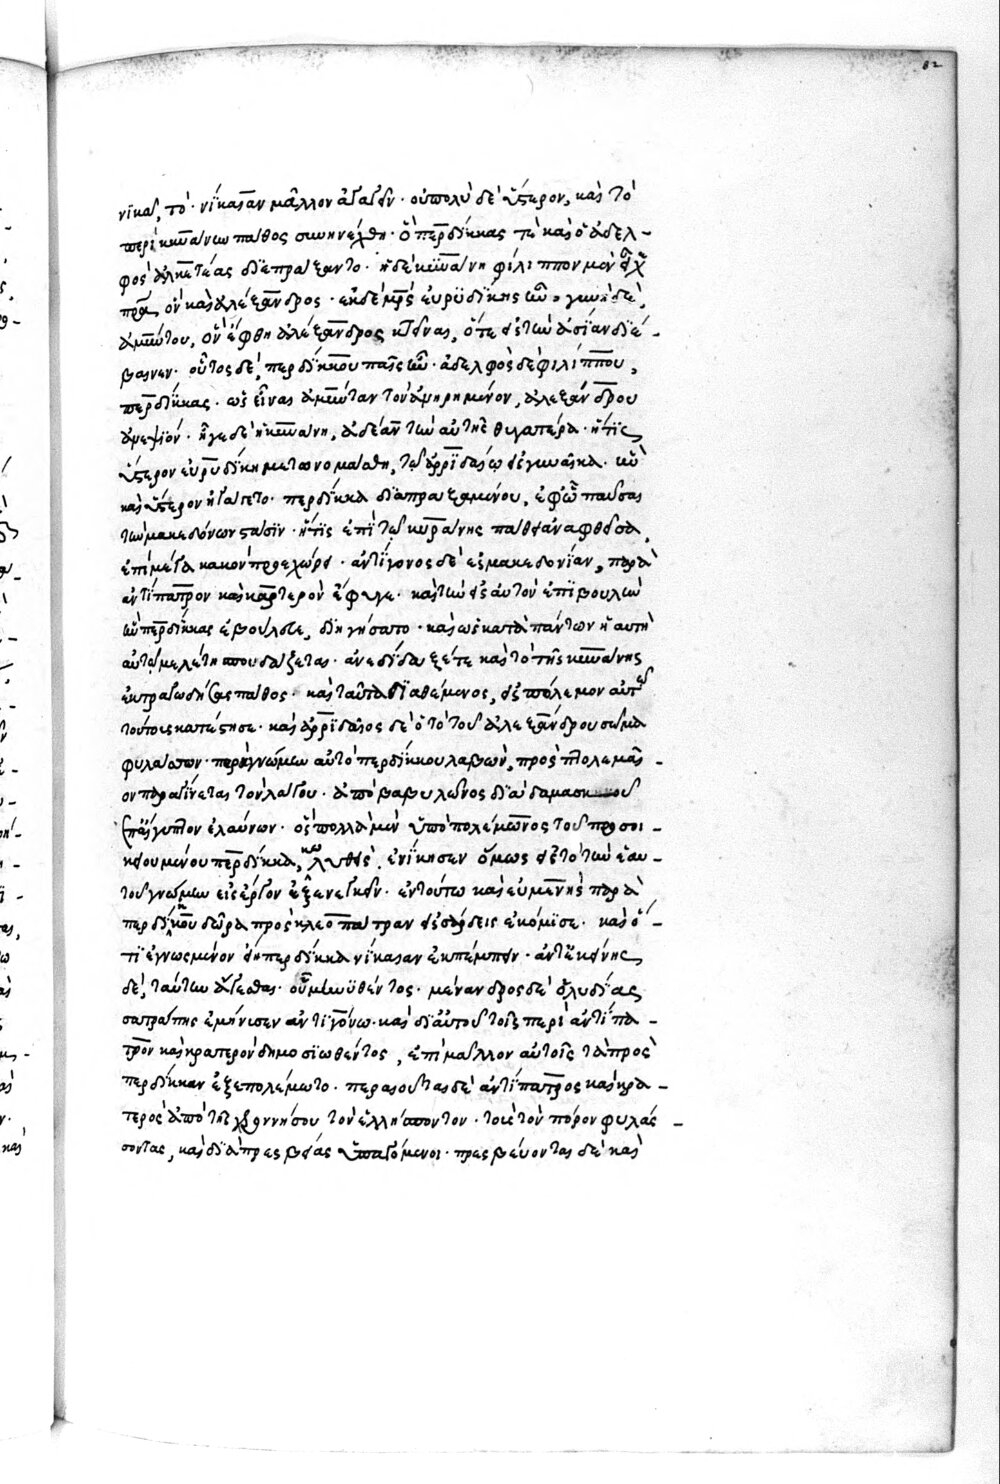 82
νίκαν, τὸ νίκαιαν μᾶλλον ἀγαγεῖν· οὐ πολὺ δὲ ὕστερον, καὶ τὸ
περὶ κυνάνην πάθος συνηνέχθη· ὃ περδίκκας τὲ καὶ ὁ ἀδελ-
φὸς ἀλκέτας διεπράξαντο· ἡ δὲ κυνάνη φίλιππον μὲν εἶχε
πρα ὃν καὶ ἀλέξανδρος· ἐκ δὲ μρς εὐρυδίκης ἦν· γυνὴ δὲ,
ἀμύντου, ὃν ἔφθη ἀλέξανδρος κτείνας, ὅτε εἰς τὴν ἀσίαν διέ-
βαινεν· οὗτος δὲ, περδίκκου παῖς ἦν· ἀδελφὸς δὲ φιλίππου,
περδίκκας· ὡς εἶναι ἀμύνταν τὸν ἀνηρημένον, ἀλεξάνδρου
ἀνεψιόν· ἦγε δὲ ἡ κυνάνη, ἀδέαν τὴν αὐτῆς θυγατέρα· ἥτις
ὕστερον εὐρυδίκη μετωνομάσθη, τῷ ἀρριδαίῳ εἰς γυναῖκα· ἣν
καὶ ὕστερον ἠγάγετο· περδίκκα διαπραξαμένου, ἐφ' ᾧ παῦσαι
τὴν μακεδόνων στάσιν· ἥτις ἐπὶ τῷ κυνάνης πάθει ἀναφθεῖσα,
ἐπὶ μέγα κακὸν προεχώρει· ἀντίγονος δὲ ἐς μακεδονίαν, παρὰ
ἀντίπατρον καὶ κάρτερον ἔφυγε· καὶ τὴν εἰς αὐτὸν ἐπιβουλὴν
ἣν περδίκκας ἐβούλετο, διηγήσατο· καὶ ὡς κατὰ πάντων ἡ αὐτὴ
αὐτῷ μελέτη σπουδάζεται· ἀνεδίδαξέ τε καὶ τὸ τῆς κυνάνης
ἐκτραγῳδήσας πάθος· καὶ ταῦτα διαθέμενος, εἰς πόλεμον αὐτῷ
τούτοις κατέστησε· καὶ ἀρριδαῖος δὲ ὁ τὸ τοῦ ἀλεξάνδρου σῶμα
φυλάσσων· παρὰ γνώμην αὐτὸ περδίκκου λαβὼν, πρὸς πτολεμαῖ-
ον παραγίνεται τὸν λάγου· ἀπὸ βαβυλῶνος διὰ δαμασκοῦ
ἐπ' αἴγυπτον ἐλαύνων· ὃς πολλὰ μὲν ὑπὸ πολέμωνος τοῦ προσοι-
κειουμένου περδίκκα, κωλυθεὶς, ἐνίκησεν ὅμως εἰς τὸ τὴν ἑαυ-
τοῦ γνώμην εἰς ἔργον ἐξενεγκεῖν· ἐν τούτῳ καὶ εὐμένης παρὰ
περδίκκου δῶρα πρὸς κλεοπάτραν εἰς σάρδεις ἐκόμισε· καὶ ὅ-
τι ἐγνωσμένον εἴη περδίκκα νίκαιαν ἐκπέμπειν· ἀντ' ἐκείνης
δὲ, ταύτην ἄγεσθαι· οὗ μηνυθέντος· μένανδρος δὲ ὁ λυδίας
σατράπης ἐμήνισεν ἀντιγόνῳ· καὶ δι' αὐτοῦ τοῖς περὶ ἀντίπα-
τρον καὶ κρατερὸν δημοσιωθέντος, ἐπὶ μᾶλλον αὐτοῖς τὰ πρὸς
περδίκκαν ἐξεπολέμωτο· περαιοῦται δὲ ἀντίπατρος καὶ κρα-
τερὸς ἀπὸ τῆς χερρονήσου τὸν ἑλλήσποντον· τοὺς τὸν πόρον φυλάσ-
σοντας, καὶ διὰ πρεσβείας ὑπαγόμενοι· πρεσβεύονται δὲ καὶ